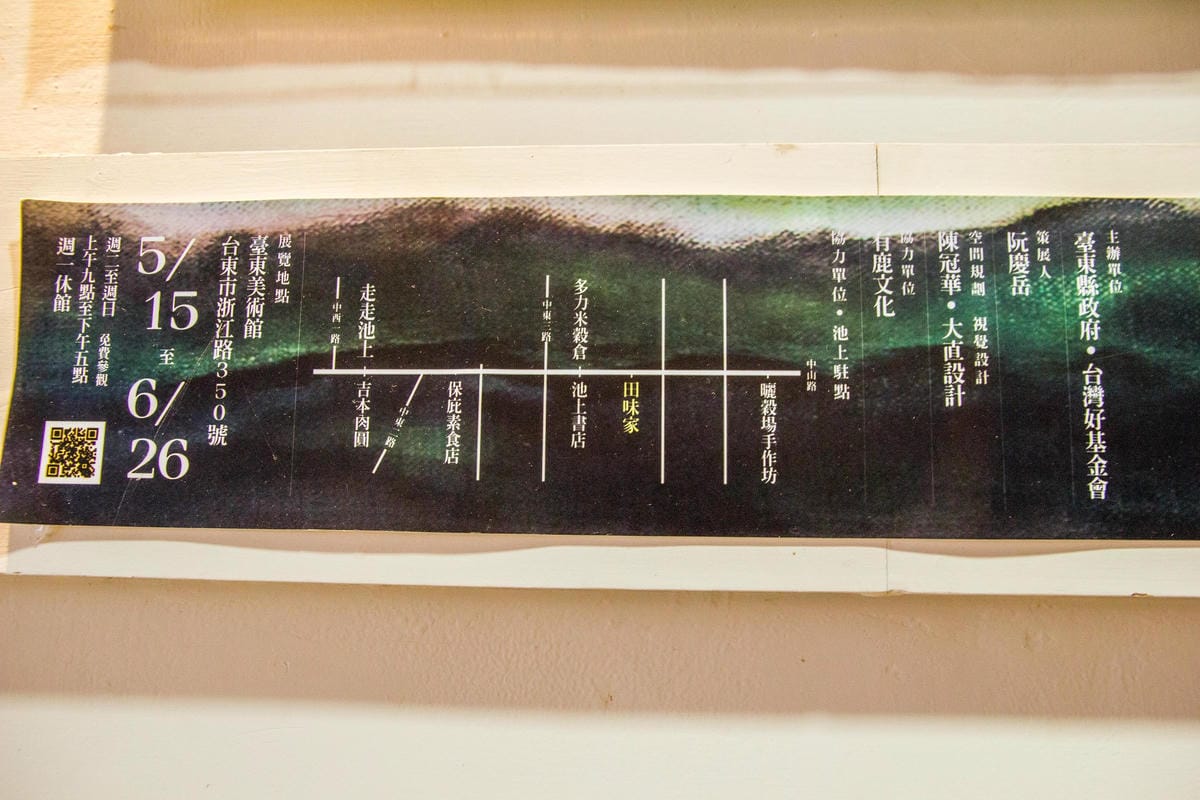 主辦單位
臺東縣政府•台灣好基金會
策展人
阮慶岳
空間規劃 視覺設計
陳冠華•大直設計
協力單位
有鹿文化
協力單位•池上駐點
中山路
曬穀場手作坊
田味家
多力米穀倉
池上書店
中東三路
保庇素食店
中東一路
走走池上
吉本肉圓
中西一路
展覽地點
臺東美術館
台東市浙江路350號
5/
15
至
6/
26
週二至週日 免費參觀
上午九點至下午五點
週一休館